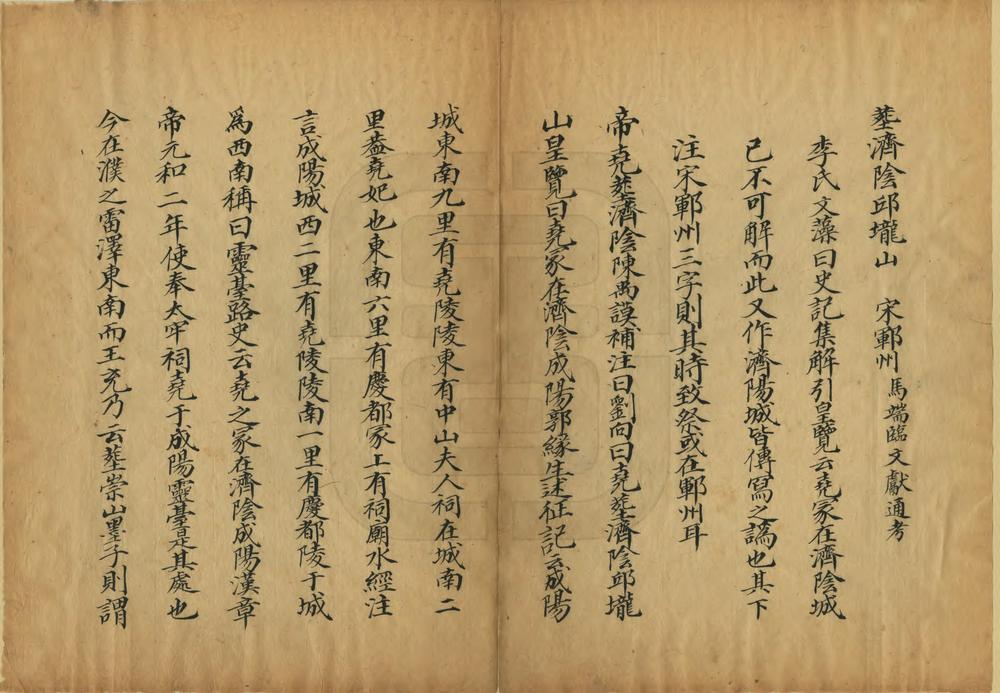 塟濟陰邱壠山　宋鄆州馬端臨文獻通考
李氏文藻曰史記集解引皇覽云堯冢在濟陰城
已不可解而此又作濟陽城皆傳寫之譌也其下
注宋鄆州三字則其時致祭或在鄆州耳
帝堯塟濟陰陳禹謨補注曰劉向曰堯塟濟陰邱壠
山皇覽曰堯冢在濟陰成陽郭緣生述征記云成陽
城東南九里有堯陵陵東有中山夫人祠在城南二
里葢堯妃也東南六里有慶都冢上有祠廟水經注
言成陽城西二里有堯陵陵南一里有慶都陵于城
爲西南稱曰靈臺路史云堯之冢在濟陰成陽漢章
帝元和二年使奉太牢祠堯于成陽靈臺是其處也
今在濮之雷澤東南而王充乃云塟崇山墨子則謂